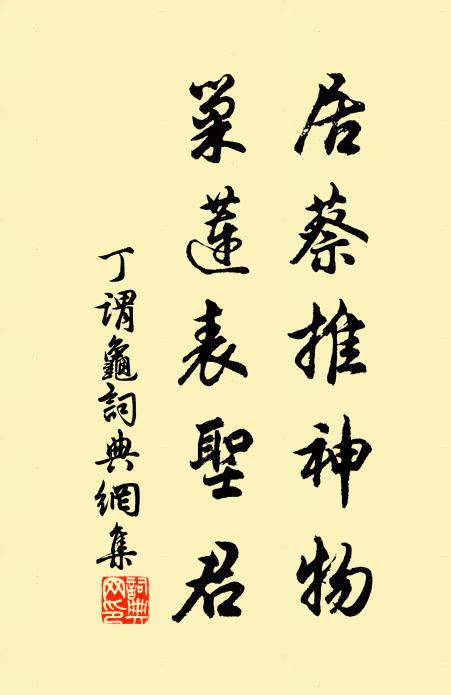 居蔡推神物
巢蓮表聖君
丁謂龜詞典網集
詞典網印